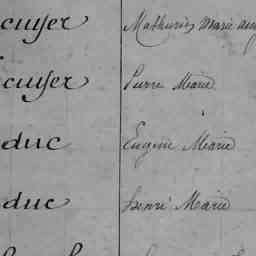 cuyer Mathurin Marie aug
cuyer Pierre Marie
duc Eugène Marie
duc henri Marie